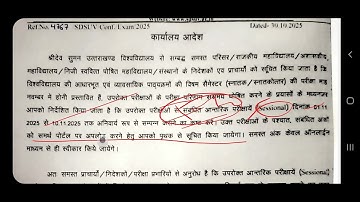 Ref.No. 4367 SDSUV Conf. Exam 2025 Dated- 30.10.2025
कार्यालय आदेश
श्रीदेव सुमन उत्तराखण्ड विश्वविद्यालय से सम्बद्ध समस्त परिसर/राजकीय महाविद्यालय/अशासकीय
महाविद्यालय/निजी स्ववित्त पोषित महाविद्यालय/संस्थानों के निदेशकों एवं प्राचार्यों को सूचित किया जाता है कि
विश्वविद्यालय की आधारभूत एवं व्यावसायिक पाठ्यक्रमों की विषम सेमेस्टर (स्नातक/स्नातकोत्तर) की परीक्षा माह
नवम्बर में होनी प्रस्तावित है, उपरोक्त परीक्षाओं के परीक्षा परिणाम ससमय घोषित करने के प्रयासों के मध्यनजर
आपको निर्देशित किया जाता है कि उपरोक्त से संबंधित आन्तरिक परीक्षायें (Sessional) दिनांक 01.11.
2025 से 10.11.2025 तक अनिवार्य रूप से सम्पन्न कराने का कष्ट करें। उक्त परीक्षाओं के पश्चात, संबंधित अंकों
को समर्थ पोर्टल पर अपलोड करने हेतु आपको पृथक से सूचित किया जायेगा। समस्त अंक केवल ऑनलाईन
माध्यम से ही स्वीकार किये जायेंगे।
अतः समस्त प्राचार्यों/निदेशकों/परीक्षा प्रभारियों से अनुरोध है कि उपरोक्त आन्तरिक परीक्षायें (Sessional)